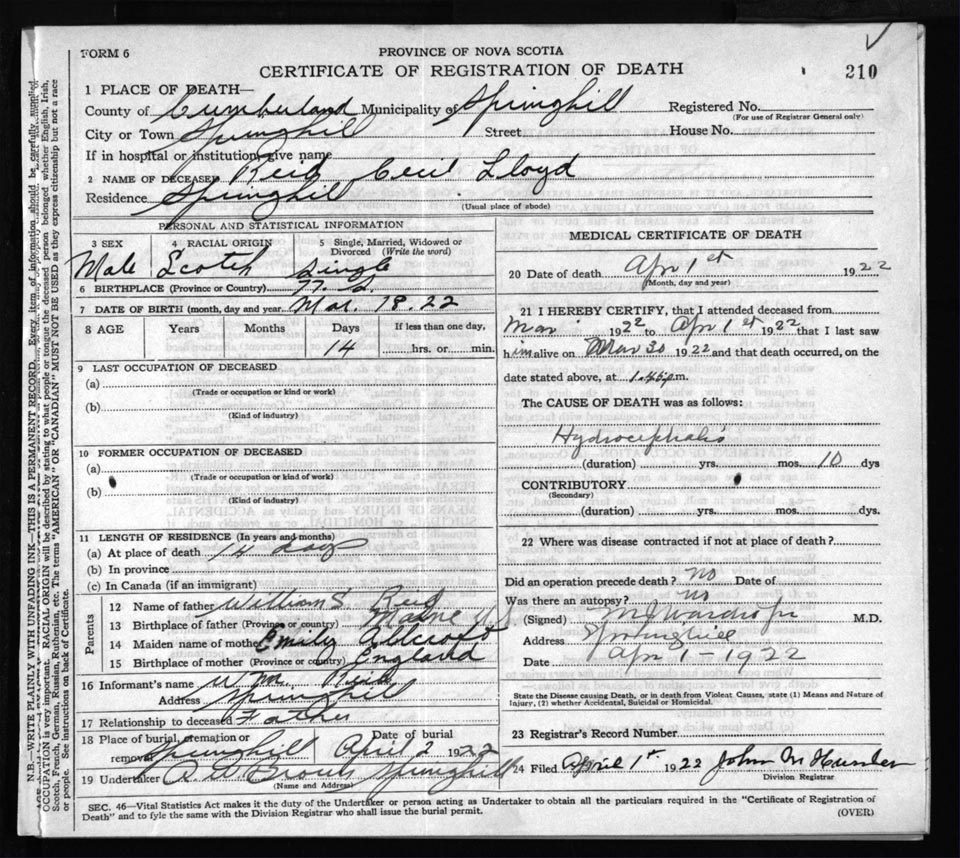 FORM 6
PROVINCE OF NOVA SCOTIA
CERTIFICATE OF REGISTRATION OF DEATH
210
1 PLACE OF DEATH—
County of Cumberland Municipality of Springhill Registered No.
(For use of Registrar General only)
City or Town Springhill Street House No.
If in hospital or institution, give name
2 NAME OF DECEASED Reid Cecil Lloyd
Residence Springhill
(Usual place of abode)
PERSONAL AND STATISTICAL INFORMATION
3 SEX 4 RACIAL ORIGIN 5 Single, Married, Widowed or Divorced (Write the word)
Male Scotch Single
6 BIRTHPLACE (Province or Country) N. S.
7 DATE OF BIRTH (month, day and year) Mar. 18. 22
8 AGE Years Months Days If less than one day,
14 hrs. or min.
9 LAST OCCUPATION OF DECEASED
(a)
(Trade or occupation or kind or work)
(b)
(Kind of industry)
10 FORMER OCCUPATION OF DECEASED
(a)
(Trade or occupation or kind of work)
(b)
(Kind of industry)
11 LENGTH OF RESIDENCE (In years and months)
(a) At place of death 14 days
(b) In province
(c) In Canada (if an immigrant)
Parents
12 Name of father William S Reid
13 Birthplace of father (Province or country) Maine U S
14 Maiden name of mother Emily
15 Birthplace of mother (Province or country) England
16 Informant's name Wm. Reid
Address Springhill
17 Relationship to deceased Father
18 Place of burial, cremation or removal Springhill Date of burial April 2 1922
19 Undertaker A A Brown Springhill
(Name and Address)
MEDICAL CERTIFICATE OF DEATH
20 Date of death Apr 1st 1922
(Month, day and year)
21 I HEREBY CERTIFY, that I attended deceased from
Mar 1922 to Apr 1st 1922 that I last saw
him alive on Mar 30 1922 and that death occurred, on the
date stated above, at 1.45 p.m.
The CAUSE OF DEATH was as follows:
Hydrocephalis
(duration) yrs. mos. 10 dys
CONTRIBUTORY
(Secondary)
(duration) yrs. mos. dys.
22 Where was disease contracted if not at place of death?
Did an operation precede death? no Date of
Was there an autopsy? no
(Signed) M.D.
Address Springhill
Date Apr 1 - 1922
State the Disease causing Death, or in death from Violent Causes, state (1) Means and Nature of
Injury, (2) whether Accidental, Suicidal or Homicidal.
23 Registrar's Record Number
24 Filed April 1st 1922 John M
Division Registrar
SEC. 46—Vital Statistics Act makes it the duty of the Undertaker or person acting as Undertaker to obtain all the particulars required in the "Certificate of Registration of
Death" and to fyle the same with the Division Registrar who shall issue the burial permit. (OVER)
N.B.—WRITE PLAINLY WITH UNFADING INK—THIS IS A PERMANENT RECORD. Every item of information should be carefully supplied.
OCCUPATION is very important. RACIAL ORIGIN will be described by stating to what people or tongue the deceased person belonged whether English, Irish,
Scotch, French, German, Russian, Ruthenian, etc. The terms "AMERICAN" OR "CANADIAN" MUST NOT BE USED as they express citizenship but not a race
or people. See instructions on back of Certificate.